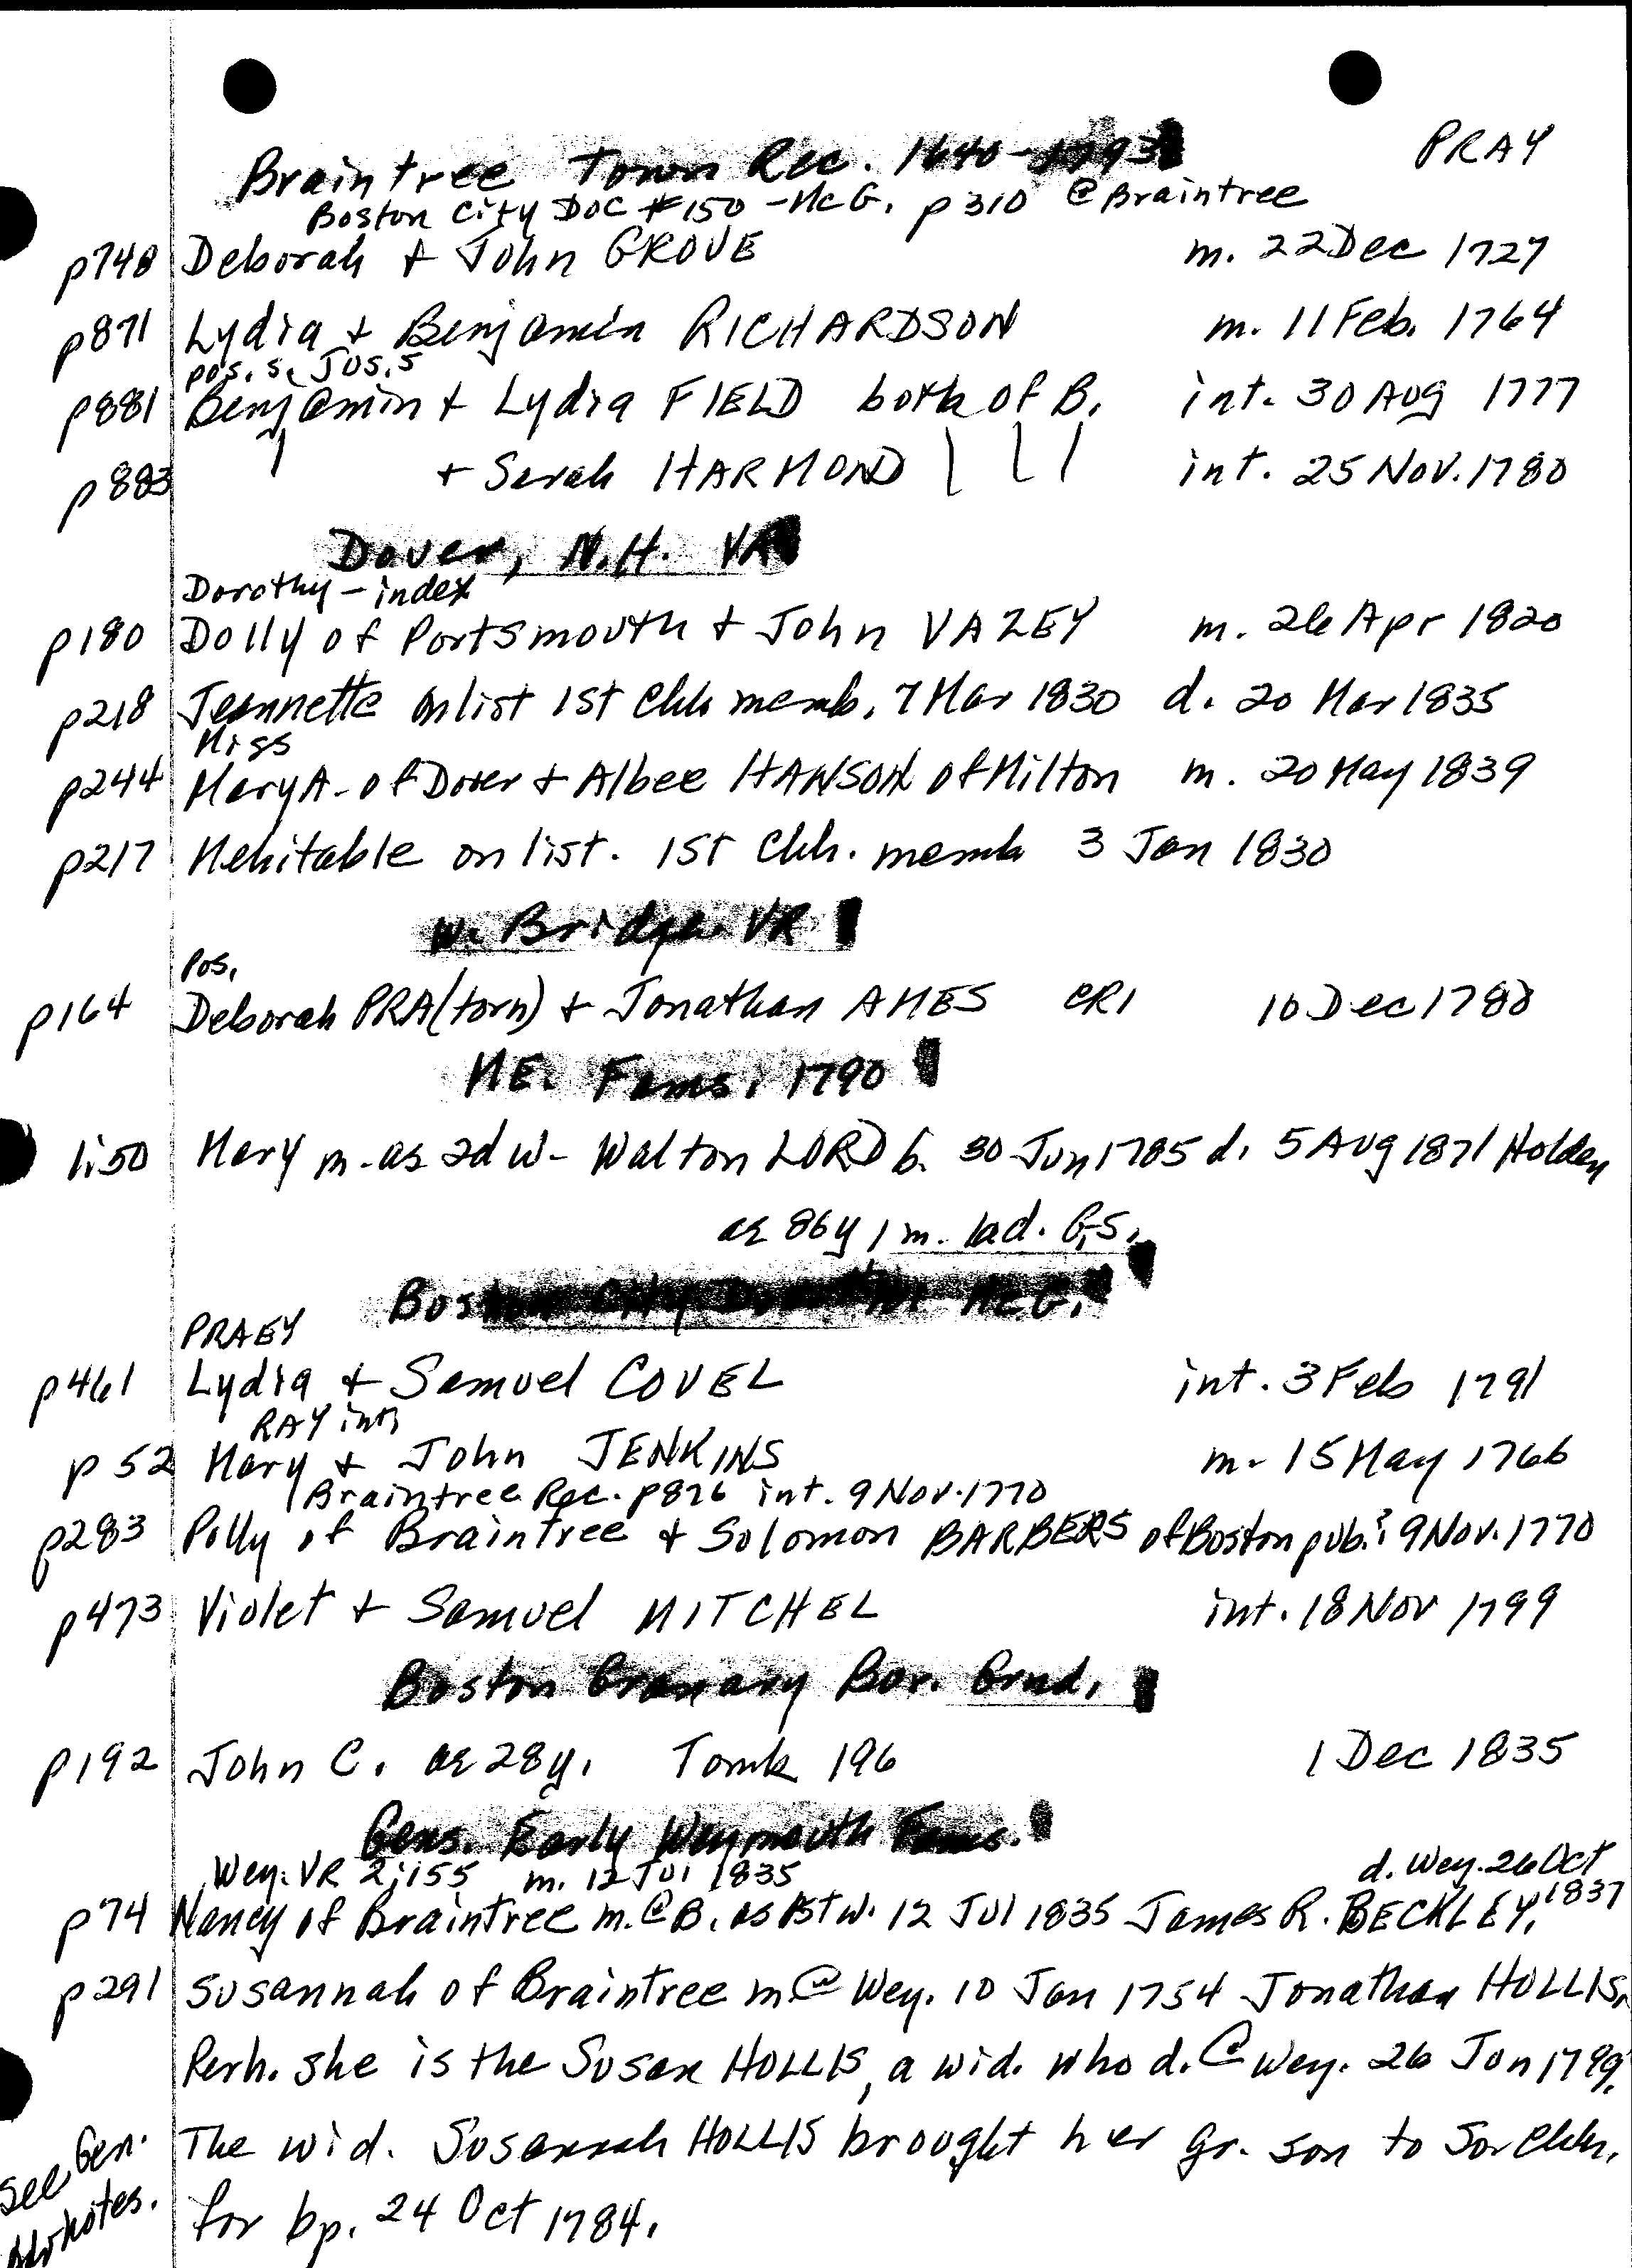 PRAY
Braintree Town Rec. 1640-1793
Boston City Doc #150 - McG. p310 @ Braintree
p748 Deborah + John GROVE m. 22 Dec 1727
p871 Lydia + Benjamin RICHARDSON m. 11 Feb. 1764
pos. s. Jos. 5
p881 Benjamin + Lydia FIELD both of B. int. 30 Aug 1777
p883 + Sarah HARMOND int. 25 Nov. 1780
Dover, N.H. VR
Dorothy - index
p180 Dolly of Portsmouth + John VAZEY m. 26 Apr 1820
p218 Jeannette on list 1st Chh memb. 7 Mar 1830 d. 20 Mar 1835
Miss
p244 Mary A. of Dover + Albee HANSON of Milton m. 20 May 1839
p217 Mehitable on list. 1st Chh. memb 3 Jan 1830
W. Bridge. VR
Pos.
p164 Deborah PRA(torn) + Jonathan AMES CR1 10 Dec 1780
ME. Fams. 1790
1:50 Mary m. as 2d w- Walton LORD b. 30 Jun 1785 d. 5 Aug 1871 Holden
ae 86y 1m. 6d. G.S.
Boston City McG.
PRAEY
p461 Lydia + Samuel COVEL int. 3 Feb 1791
RAY int.
p52 Mary + John JENKINS m. 15 May 1766
Braintree Rec. p876 int. 9 Nov. 1770
p283 Polly of Braintree + Solomon BARBERS of Boston pub.? 9 Nov. 1770
p473 Violet + Samuel MITCHEL int. 18 Nov 1799
Boston Granary Bur. Grnd.
p192 John C. ae 28y. Tomb 196 1 Dec 1835
Gens. Early Weymouth Fams.
Wey. VR 2:155 m. 12 Jul 1835 d. Wey. 26 Oct 1837
p74 Nancy of Braintree m. @ B. as 1st w. 12 Jul 1835 James R. BECKLEY.
p291 Susannah of Braintree m @ Wey. 10 Jan 1754 Jonathan HOLLIS.
Perh. she is the Susan HOLLIS, a wid. who d. @ Wey. 26 Jan 1799.
The wid. Susannah HOLLIS brought her gr. son to So. Chh.
for bp. 24 Oct 1784.
See Gen.
notes.